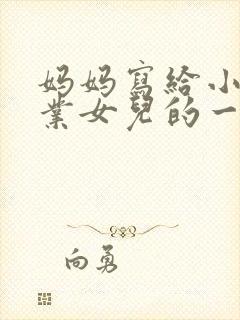 妈妈寫給小
業女兒的一
向勇